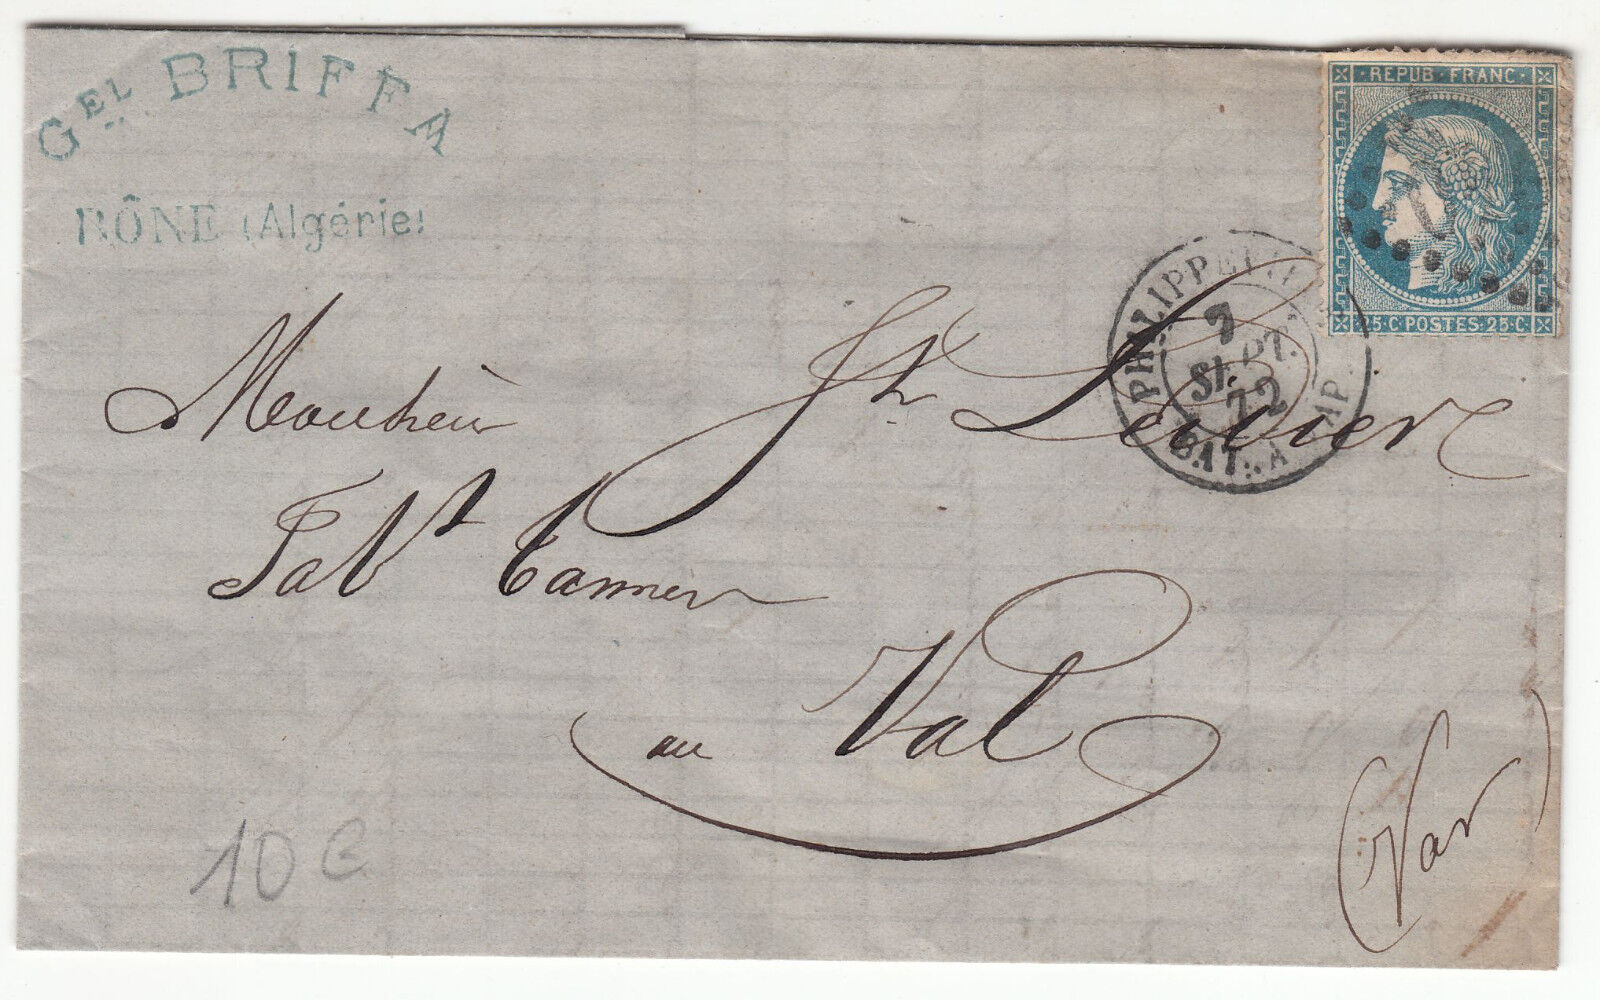 Gel BRIFFA
BÔNE (Algérie)
REPUB FRANC
25 C POSTES 25 C
PHILIPPEVILLE
7
SEPT.
72
BAT. A VAP.
Monsieur Jh
Fabt Tanneur
au Val
(Var)
10 €